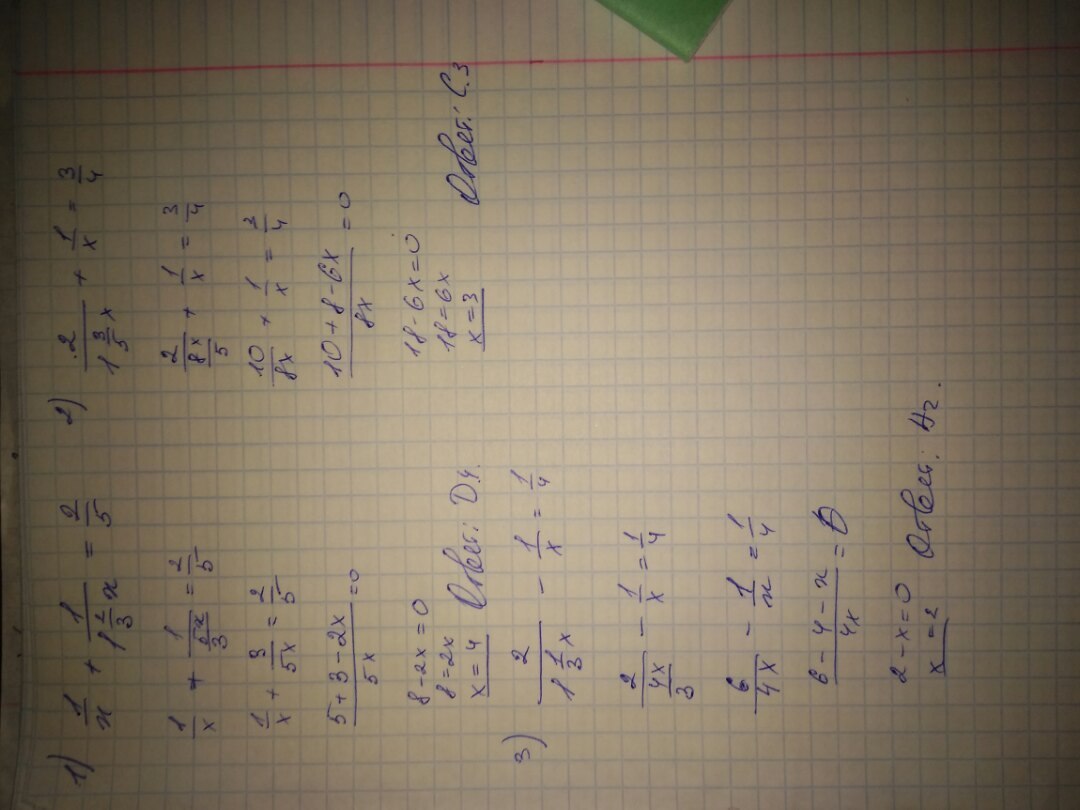 1) 1/x + 1/(1 2/3 x) = 2/5
1/x + 1/(5x/3) = 2/5
1/x + 3/5x = 2/5
(5+3-2x)/5x = 0
8-2x=0
8=2x
x=4 Ответ: D4.
2) 2/(1 3/5 x) + 1/x = 3/4
2/(8x/5) + 1/x = 3/4
10/8x + 1/x = 3/4
(10+8-6x)/8x = 0
18-6x=0
18=6x
x=3 Ответ: C.3
3) 2/(1 1/3 x) - 1/x = 1/4
2/(4x/3) - 1/x = 1/4
6/4x - 1/x = 1/4
(6-4-x)/4x = 0
2-x=0
x=2 Ответ: A2.